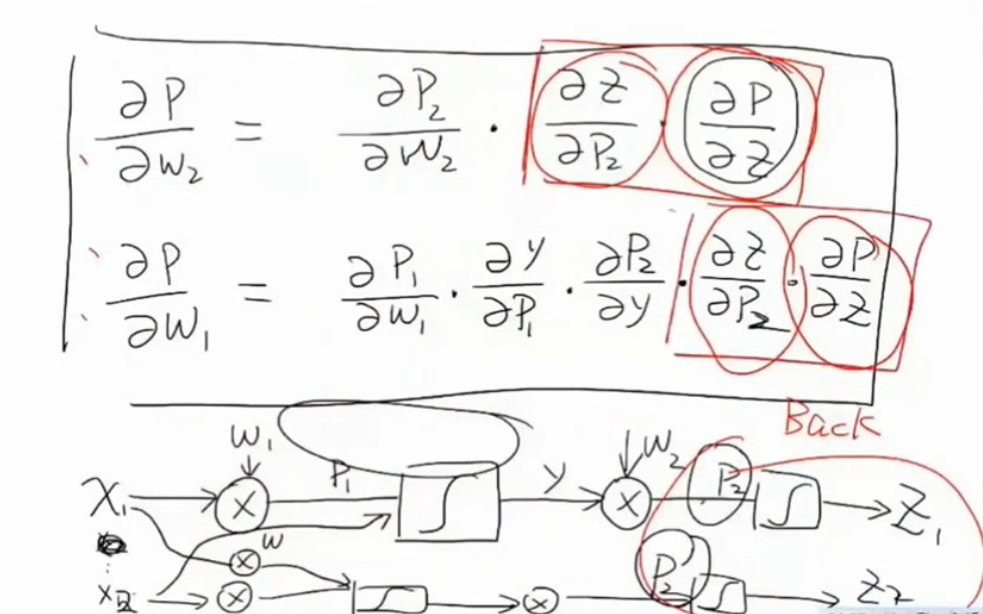 ∂P/∂W₂ = ∂P₂/∂W₂ · ∂Z/∂P₂ · ∂P/∂Z
∂P/∂W₁ = ∂P₁/∂W₁ · ∂y/∂P₁ · ∂P₂/∂y · ∂Z/∂P₂ · ∂P/∂Z
Back
W₁ W₂
X₁ × P₁ ∫ y × P₂ ∫ Z₁
W ×
× ∫ × P₂' ∫ Z₂